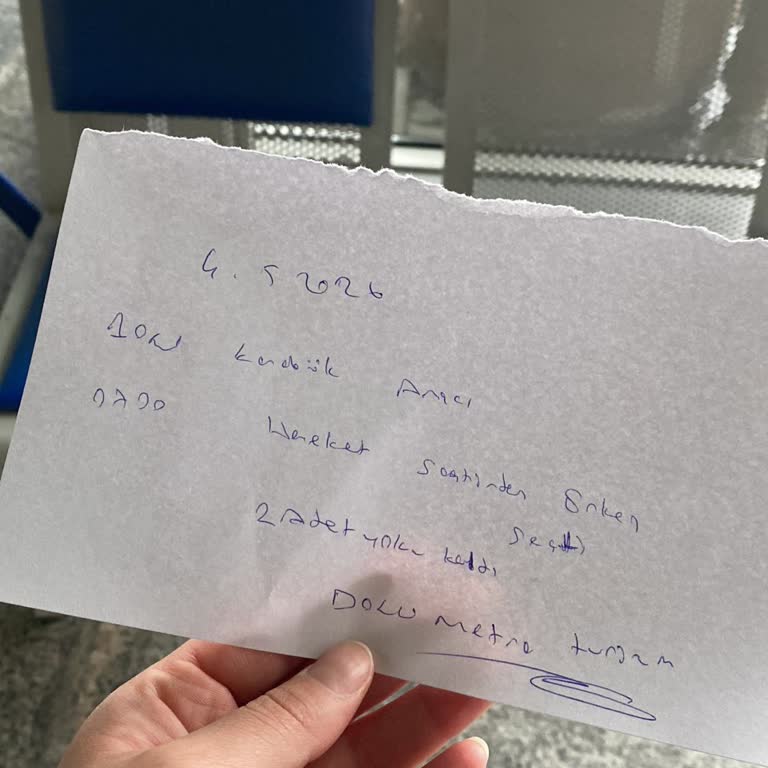 4.5 2026
Karabük Aracı
0700 Hareket saatinden Erken
Seçti
2 Adet yolcu kaldı
DOLU metro turizm